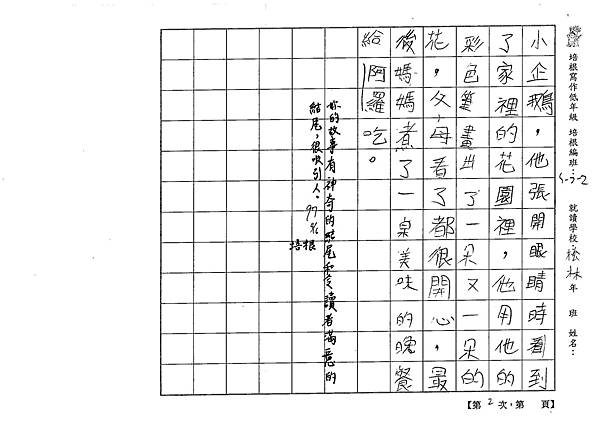 培根寫作低年級 培根編班：5-3-2 就讀學校：松林 年 班 姓名：
小企鵝，他張開眼睛時看到
了家裡的花園裡，他用他的
彩色筆畫出了一朵又一朵的
花，父母看了都很開心，最
後媽媽煮了一桌美味的晚餐
給阿羅吃。
你的故事有神奇的結尾和令讀者滿意的
結尾，很吸引人。97分
培根
【第2次，第 頁】